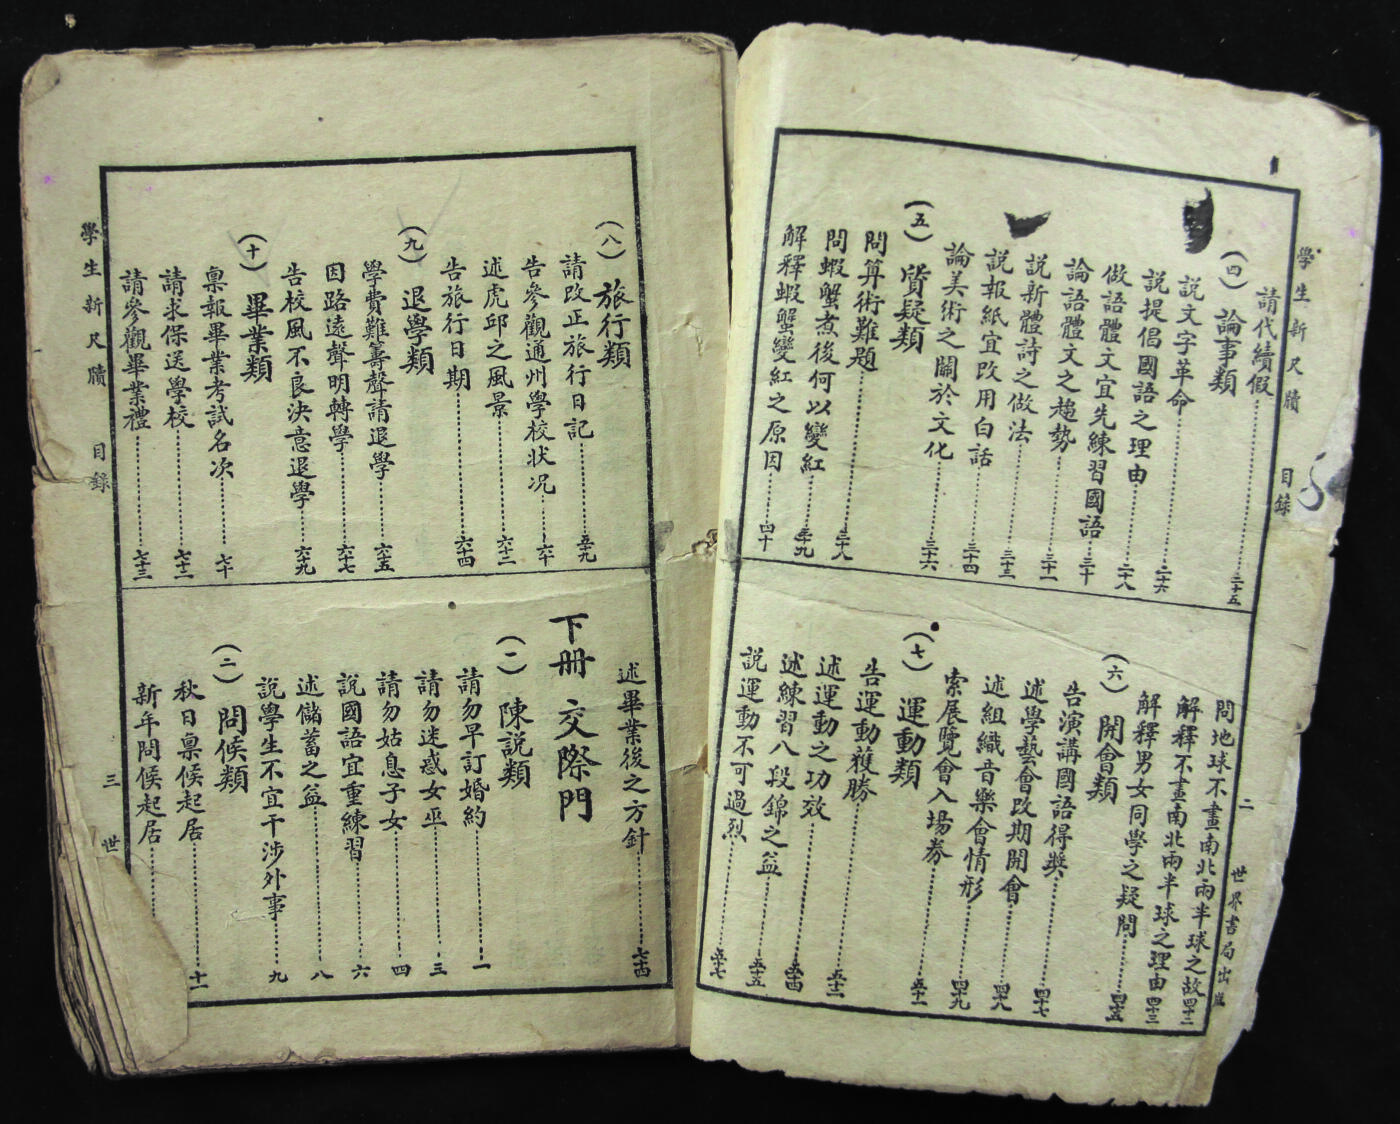 學生新尺牘 目錄 二 世界書局出版
請代續假 二十五
(四) 論事類
說文字革命 二十六
說提倡國語之理由 二十八
做語體文宜先練習國語 三十
論語體文之趨勢 三十一
說新體詩之做法 三十三
說報紙宜改用白話 三十四
論美術之關於文化 三十六
(五) 質疑類
問算術難題 三十八
問蝦蟹煮後何以變紅 三十九
解釋蝦蟹變紅之原因 四十
問地球不畫南北兩半球之故 四十二
解釋不畫南北兩半球之理由 四十三
解釋男女同學之疑問 四十五
(六) 開會類
告演講國語得獎 四十七
述學藝會改期開會 四十八
述組織音樂會情形 四十九
索展覽會入場券 五十一
(七) 運動類
告運動獲勝
述運動之功效 五十二
述練習八段錦之益 五十四
說運動不可過烈 五十五
五十七
(八) 旅行類
請改正旅行日記 五十九
告參觀通州學校狀况 六十
述虎邱之風景 六十二
告旅行日期 六十四
(九) 退學類
學費難籌聲請退學 六十五
因路遠聲明轉學 六十七
告校風不良決意退學 六十九
(十) 畢業類
禀報畢業考試名次 七十
請求保送學校 七十二
請參觀畢業禮 七十三
述畢業後之方針 七十四
下冊 交際門
(一) 陳說類
請勿早訂婚約 一
請勿迷惑女巫 三
請勿姑息子女 四
說國語宜重練習 六
述儲蓄之益 八
說學生不宜干涉外事 九
(二) 問候類
秋日禀候起居 十一
新年問候起居
學生新尺牘 目錄 三 世